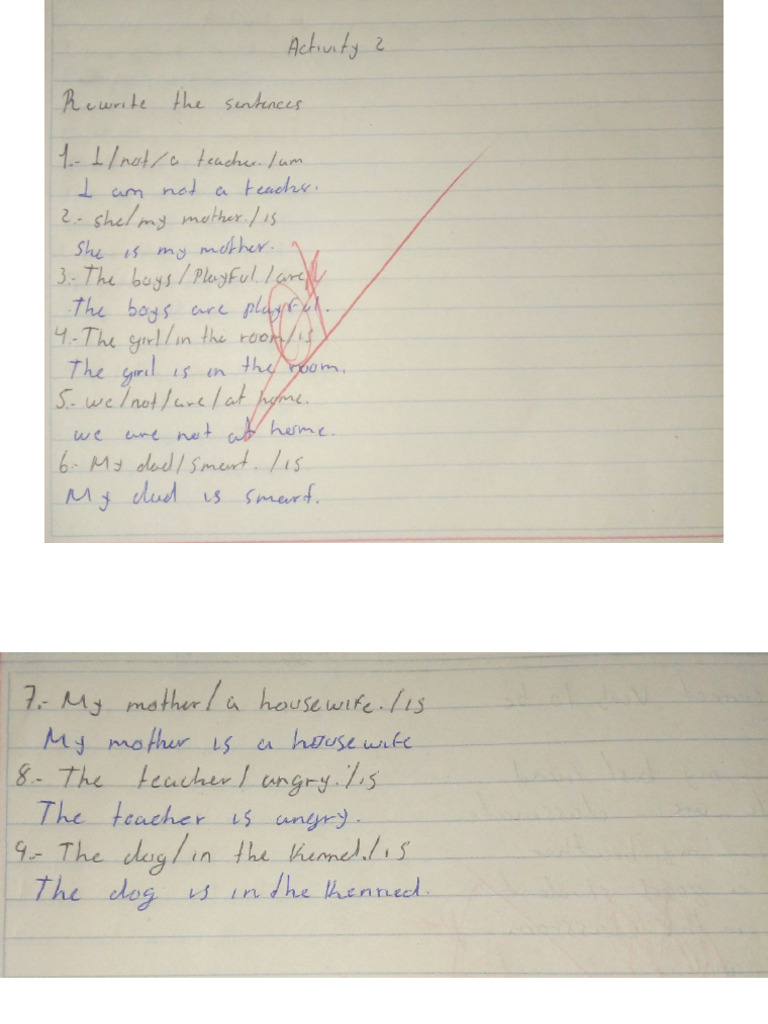 Activity 2
Rewrite the sentences
1.- I/not/a teacher./am
I am not a teacher.
2.- she/my mother./is
she is my mother.
3.- The boys/Playful./are
The boys are playful.
4.- The girl/in the room/is
The giril is in the room.
5.- we/not/are/at home.
we are not at home.
6.- My dad/smart./is
My dad is smart.
7.- My mother/a housewife./is
My mother is a housewife
8.- The teacher/angry./is
The teacher is angry.
9.- The dog/in the Kenned./is
The dog is in the Kenned.